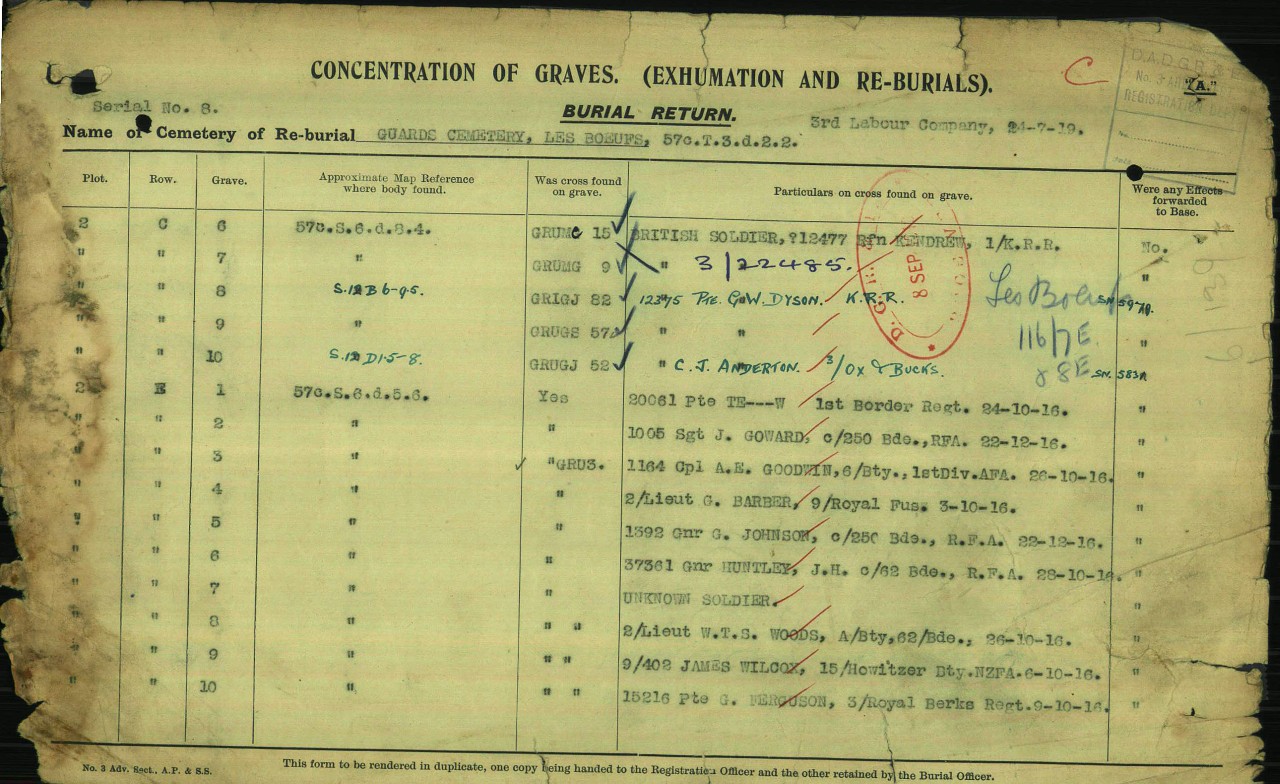 CONCENTRATION OF GRAVES. (EXHUMATION AND RE-BURIALS).
C
D.A.D.G.R.&E.
"A."
Serial No. 8.
BURIAL RETURN.
3rd Labour Company, 24-7-19.
Name of Cemetery of Re-burial GUARDS CEMETERY, LES BOEUFS, 57c.T.3.d.2.2.
Plot. Row. Grave. Approximate Map Reference where body found. Was cross found on grave. Particulars on cross found on grave. Were any Effects forwarded to Base.
2 C 6 57c.S.6.d.8.4. GRUMC 15 BRITISH SOLDIER,?12477 Rfn KENDREW, 1/K.R.R. No.
" " 7 " GRUMG 9 " 3/22485. "
" " 8 S.12 B 6-9.5. GRIGJ 82 12375 Pte. G.W. DYSON. K.R.R. Les Boeufs "
" " 9 " GRUGS 57 " " 116/7 E "
" " 10 S.12 D 1.5-8. GRUGJ 52 " C. J. ANDERTON. 3/OX & BUCKS. 8 E "
2 E 1 57c.S.6.d.5.6. Yes 20061 Pte TE---W 1st Border Regt. 24-10-16. "
" " 2 " " 1005 Sgt J. GOWARD, c/250 Bde.,RFA. 22-12-16. "
" " 3 " "GRU3. 1164 Cpl A.E. GOODWIN,6/Bty.,1stDiv.AFA. 26-10-16. "
" " 4 " " 2/Lieut G. BARBER, 9/Royal Fus. 3-10-16. "
" " 5 " " 1392 Gnr G. JOHNSON, c/250 Bde., R.F.A. 22-12-16. "
" " 6 " " 37361 Gnr HUNTLEY, J.H. c/62 Bde., R.F.A. 28-10-16. "
" " 7 " " UNKNOWN SOLDIER. "
" " 8 " " " 2/Lieut W.T.S. WOODS, A/Bty,62/Bde., 26-10-16. "
" " 9 " " " 9/402 JAMES WILCOX, 15/Howitzer Bty.NZFA.6-10-16. "
" " 10 " " " 15216 Pte G. FERGUSON, 3/Royal Berks Regt.9-10-16. "
8 SEP
No. 3 Adv. Sect., A.P. & S.S.
This form to be rendered in duplicate, one copy being handed to the Registration Officer and the other retained by the Burial Officer.